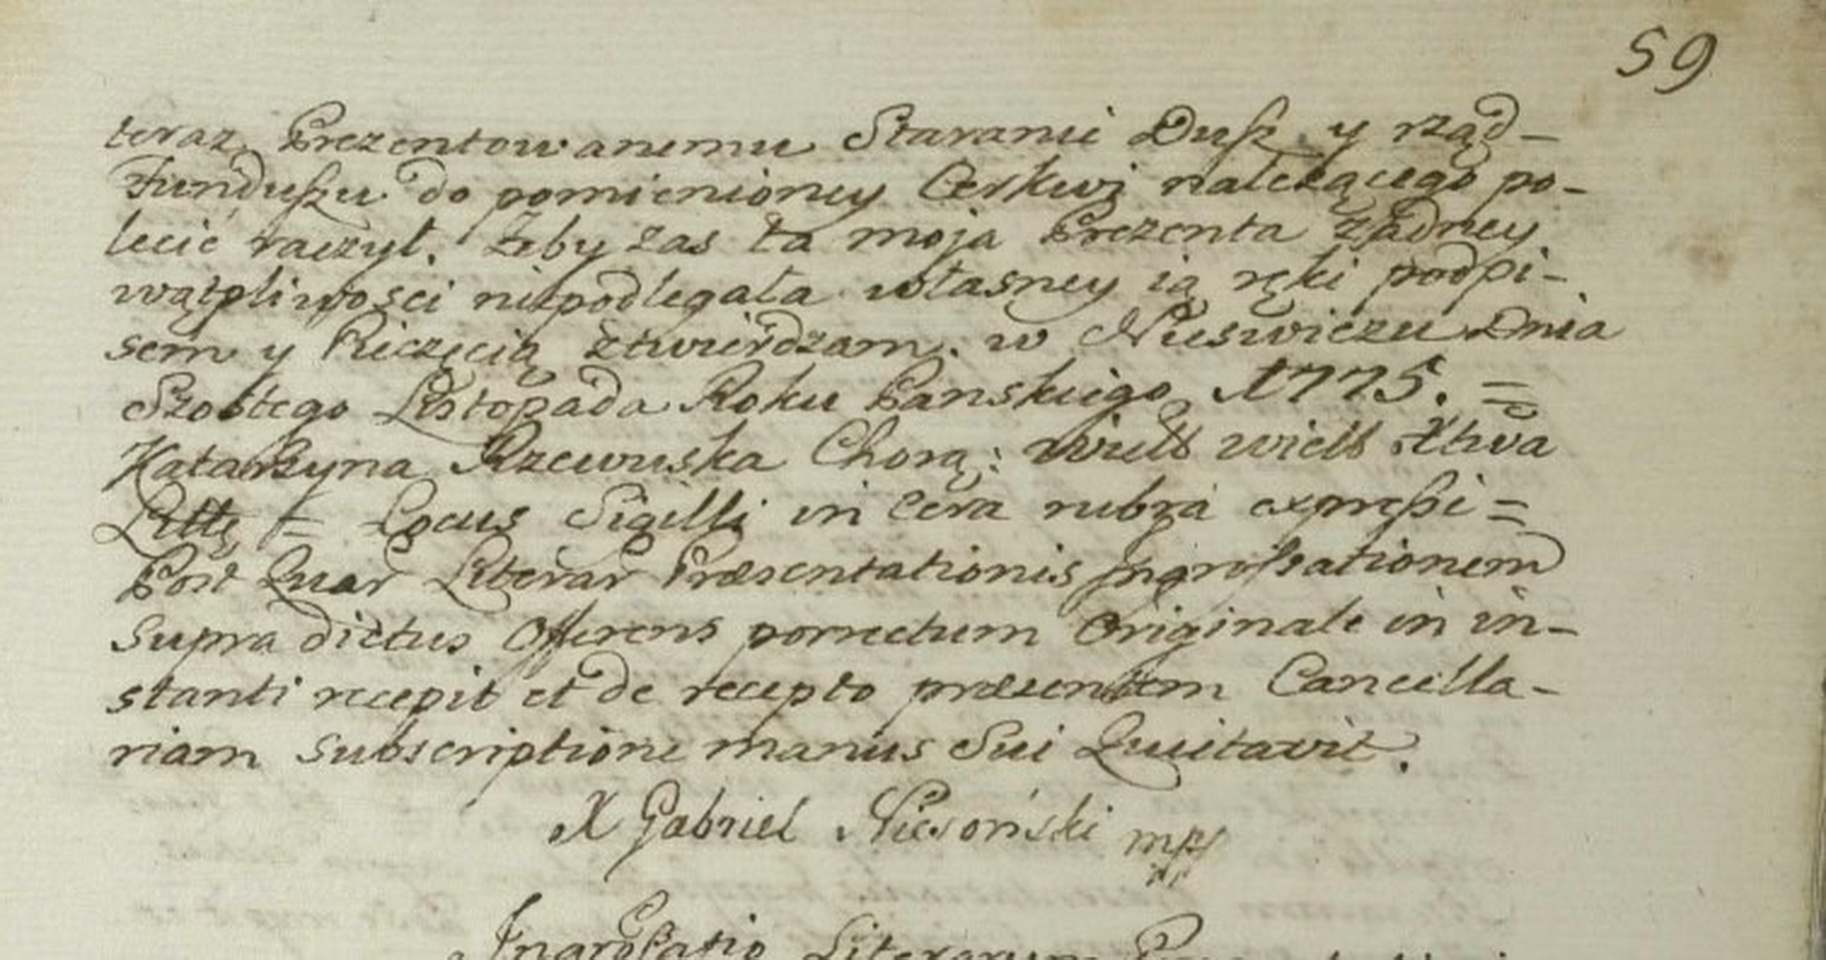 59
teraz Prezentowanemu Staranie Dusz y rząd-
Funduszu do pomienioney Cerkwi należącego po-
lecić raczył. Żeby zas ta moja Prezenta żadney
wątpliwości niepodlegała własney ią ręki podpi-
sem y Pieczęcią ztwierdzam. w Nieswiezu Dnia
Szostego Listopada Roku Panskiego 1775. =
Katarzyna Rzewuska Chorą: Xtwa
Litt = Locus Sigilli in Cera rubra expressi =
Post Quar Literar Præsentationis Ingrossationem
Supra dictus Offerens porrectum Originale in in-
stanti recepit et de recepto præsentem Cancella-
riam subscriptione manus Sui Quitavit.
X Gabriel mp
Ingrossatio Literarum